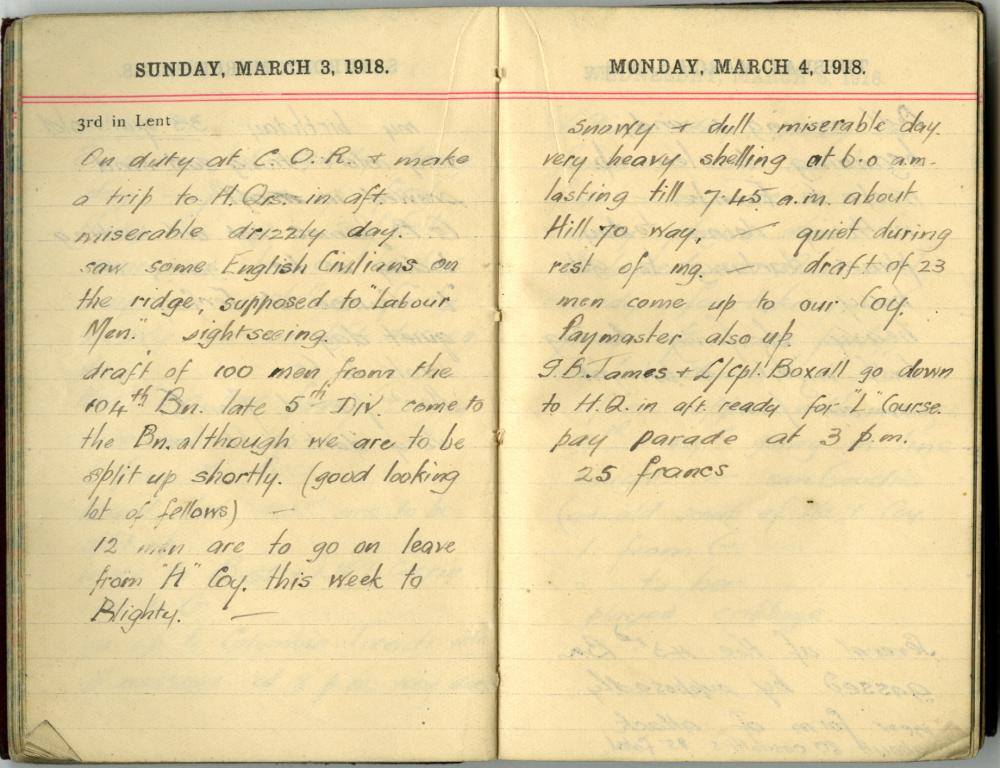 SUNDAY, MARCH 3, 1918.
3rd in Lent
On duty at C.O.R. + make
a trip to H.Qrs. in aft.
miserable drizzly day.
saw some English Civilians on
the ridge, supposed to "Labour
Men." sightseeing.
draft of 100 men from the
104th Bn. late 5th Div. come to
the Bn. although we are to be
split up shortly. (good looking
lot of fellows) —
12 men are to go on leave
from "H" Coy. this week to
Blighty. —
MONDAY, MARCH 4, 1918.
snowy + dull miserable day.
very heavy shelling at 6.0 a.m.
lasting till 7.45 a.m. about
Hill 70 way, — quiet during
rest of mg. — draft of 23
men come up to our Coy.
Paymaster also up.
G.B. James + L/Cpl. Boxall go down
to H.Q. in aft. ready for "L" Course.
pay parade at 3 p.m.
25 francs